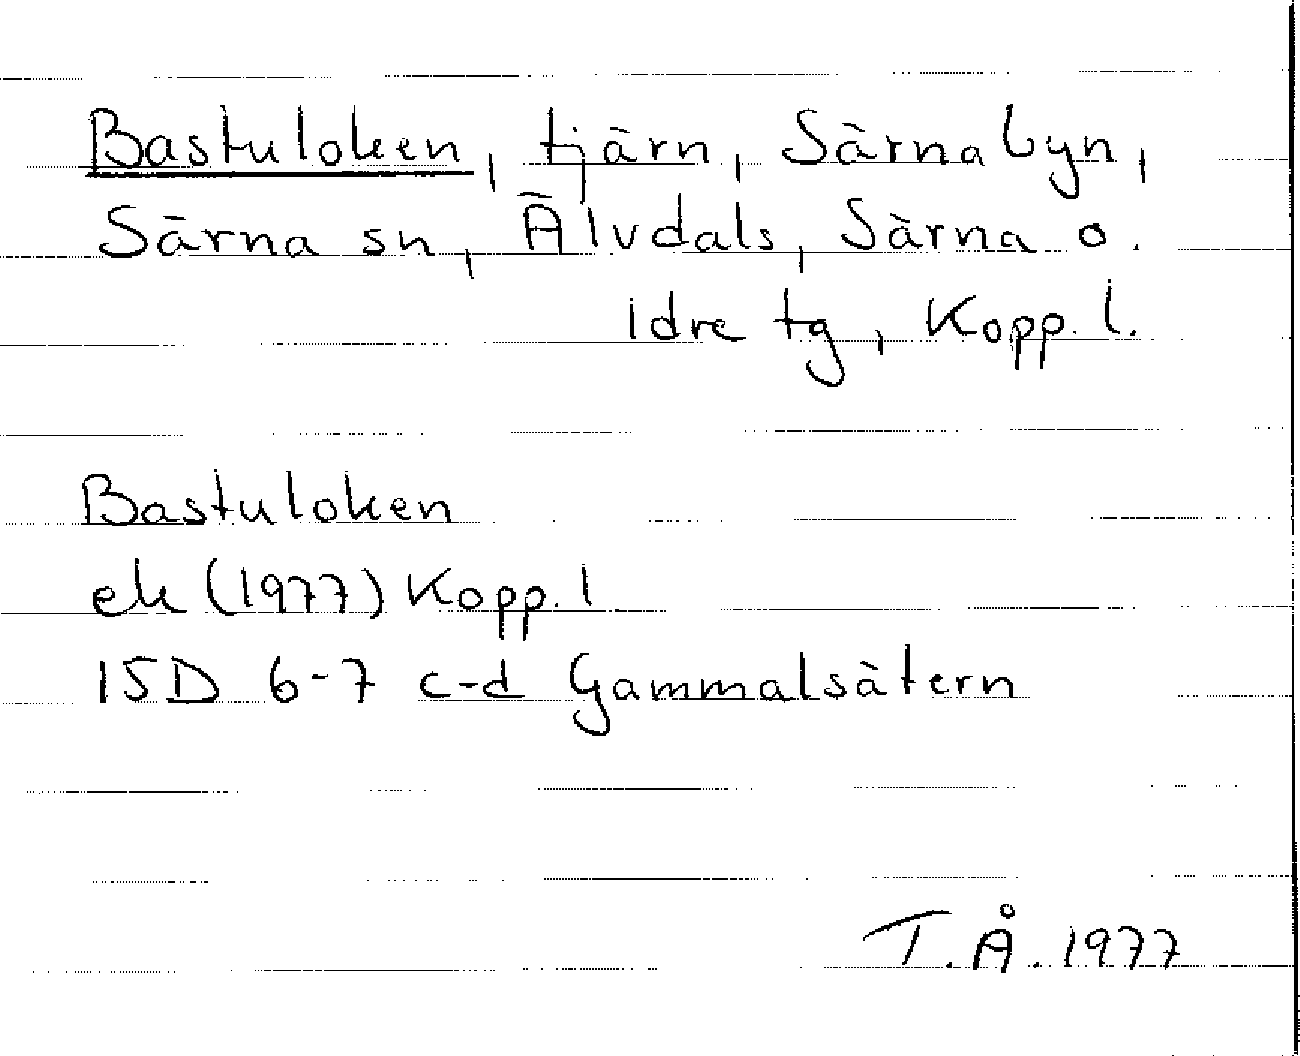 Bastuloken, tjärn, Särnabyn,
Särna sn, Älvdals, Särna o.
Idre tg, Kopp. l.
Bastuloken
ek (1977) Kopp. l
15D 6-7 c-d Gammalsätern
T. Å. 1977